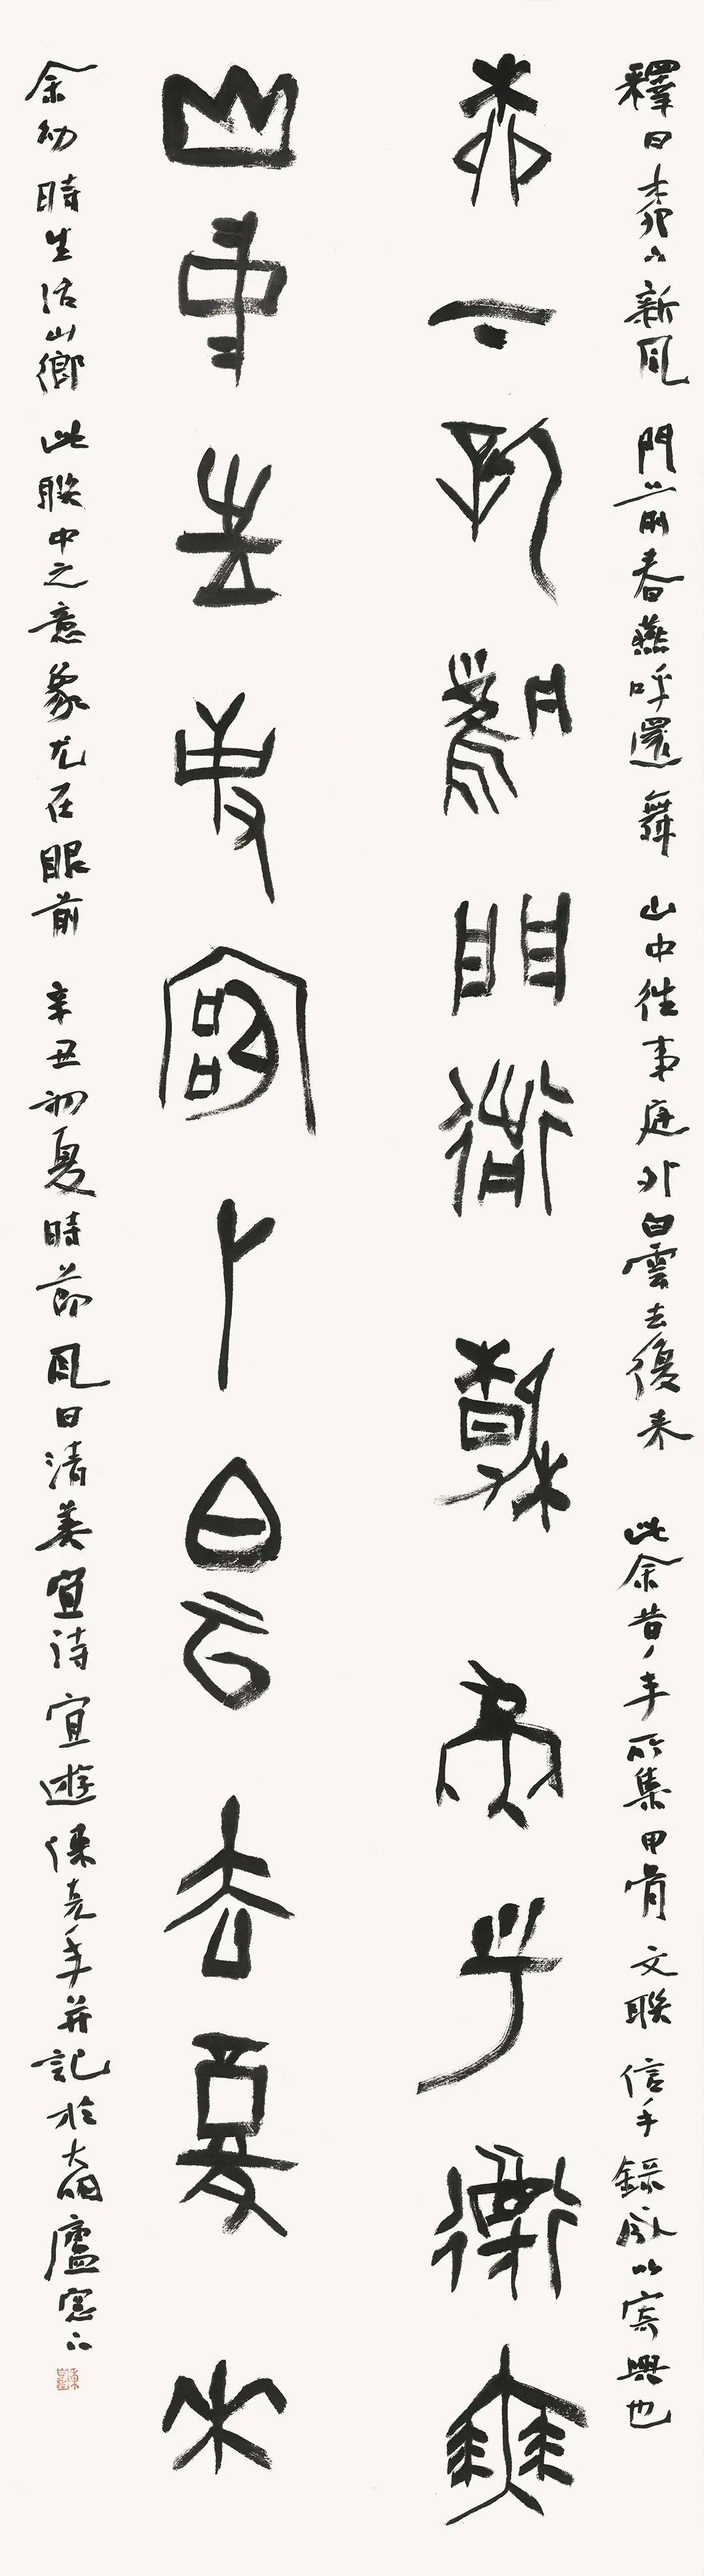 釋曰桺下新風門前春燕呼還舞山中往事庭外白雲去復來此余昔年所集甲骨文聯信手錄成以寄興也
桺下新風門前春燕乎還舞
山中往事庭卜白云去复來
余幼時生活山鄉此聯中之意象尤在眼前辛丑初夏時節風日清美宜詩宜遊并記於大明廬窗下